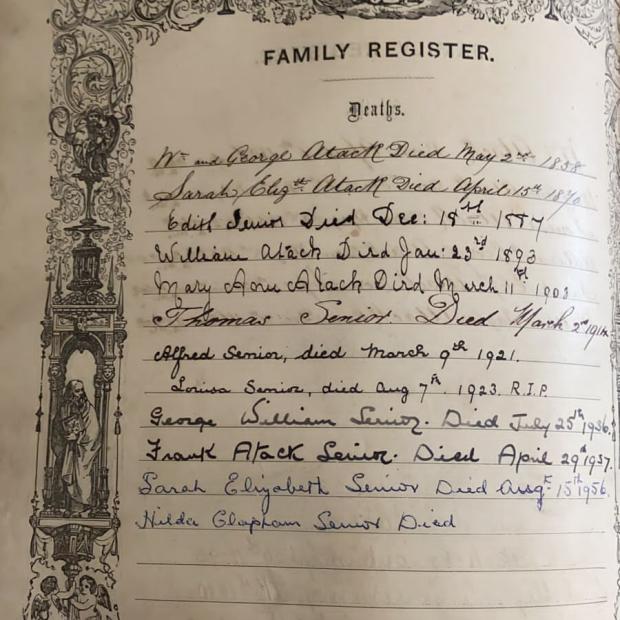 FAMILY REGISTER.
Deaths.
Wm and George Atack Died May 2nd 1858
Sarah Elizth Atack Died April 15th 1870
Edith Senior Died Dec: 18th 1887
William Atack Died Jan: 23rd 1893
Mary Ann Atack Died March 11th 1903
Thomas Senior. Died March 2nd
Alfred Senior, died March 9th 1921.
Louisa Senior, died Aug 7th. 1923. R.I.P.
George William Senior. Died July 25th 1936.
Frank Atack Senior. Died April 29th 1937.
Sarah Elizabeth Senior Died Augt 15th 1956.
Hilda Clapham Senior Died